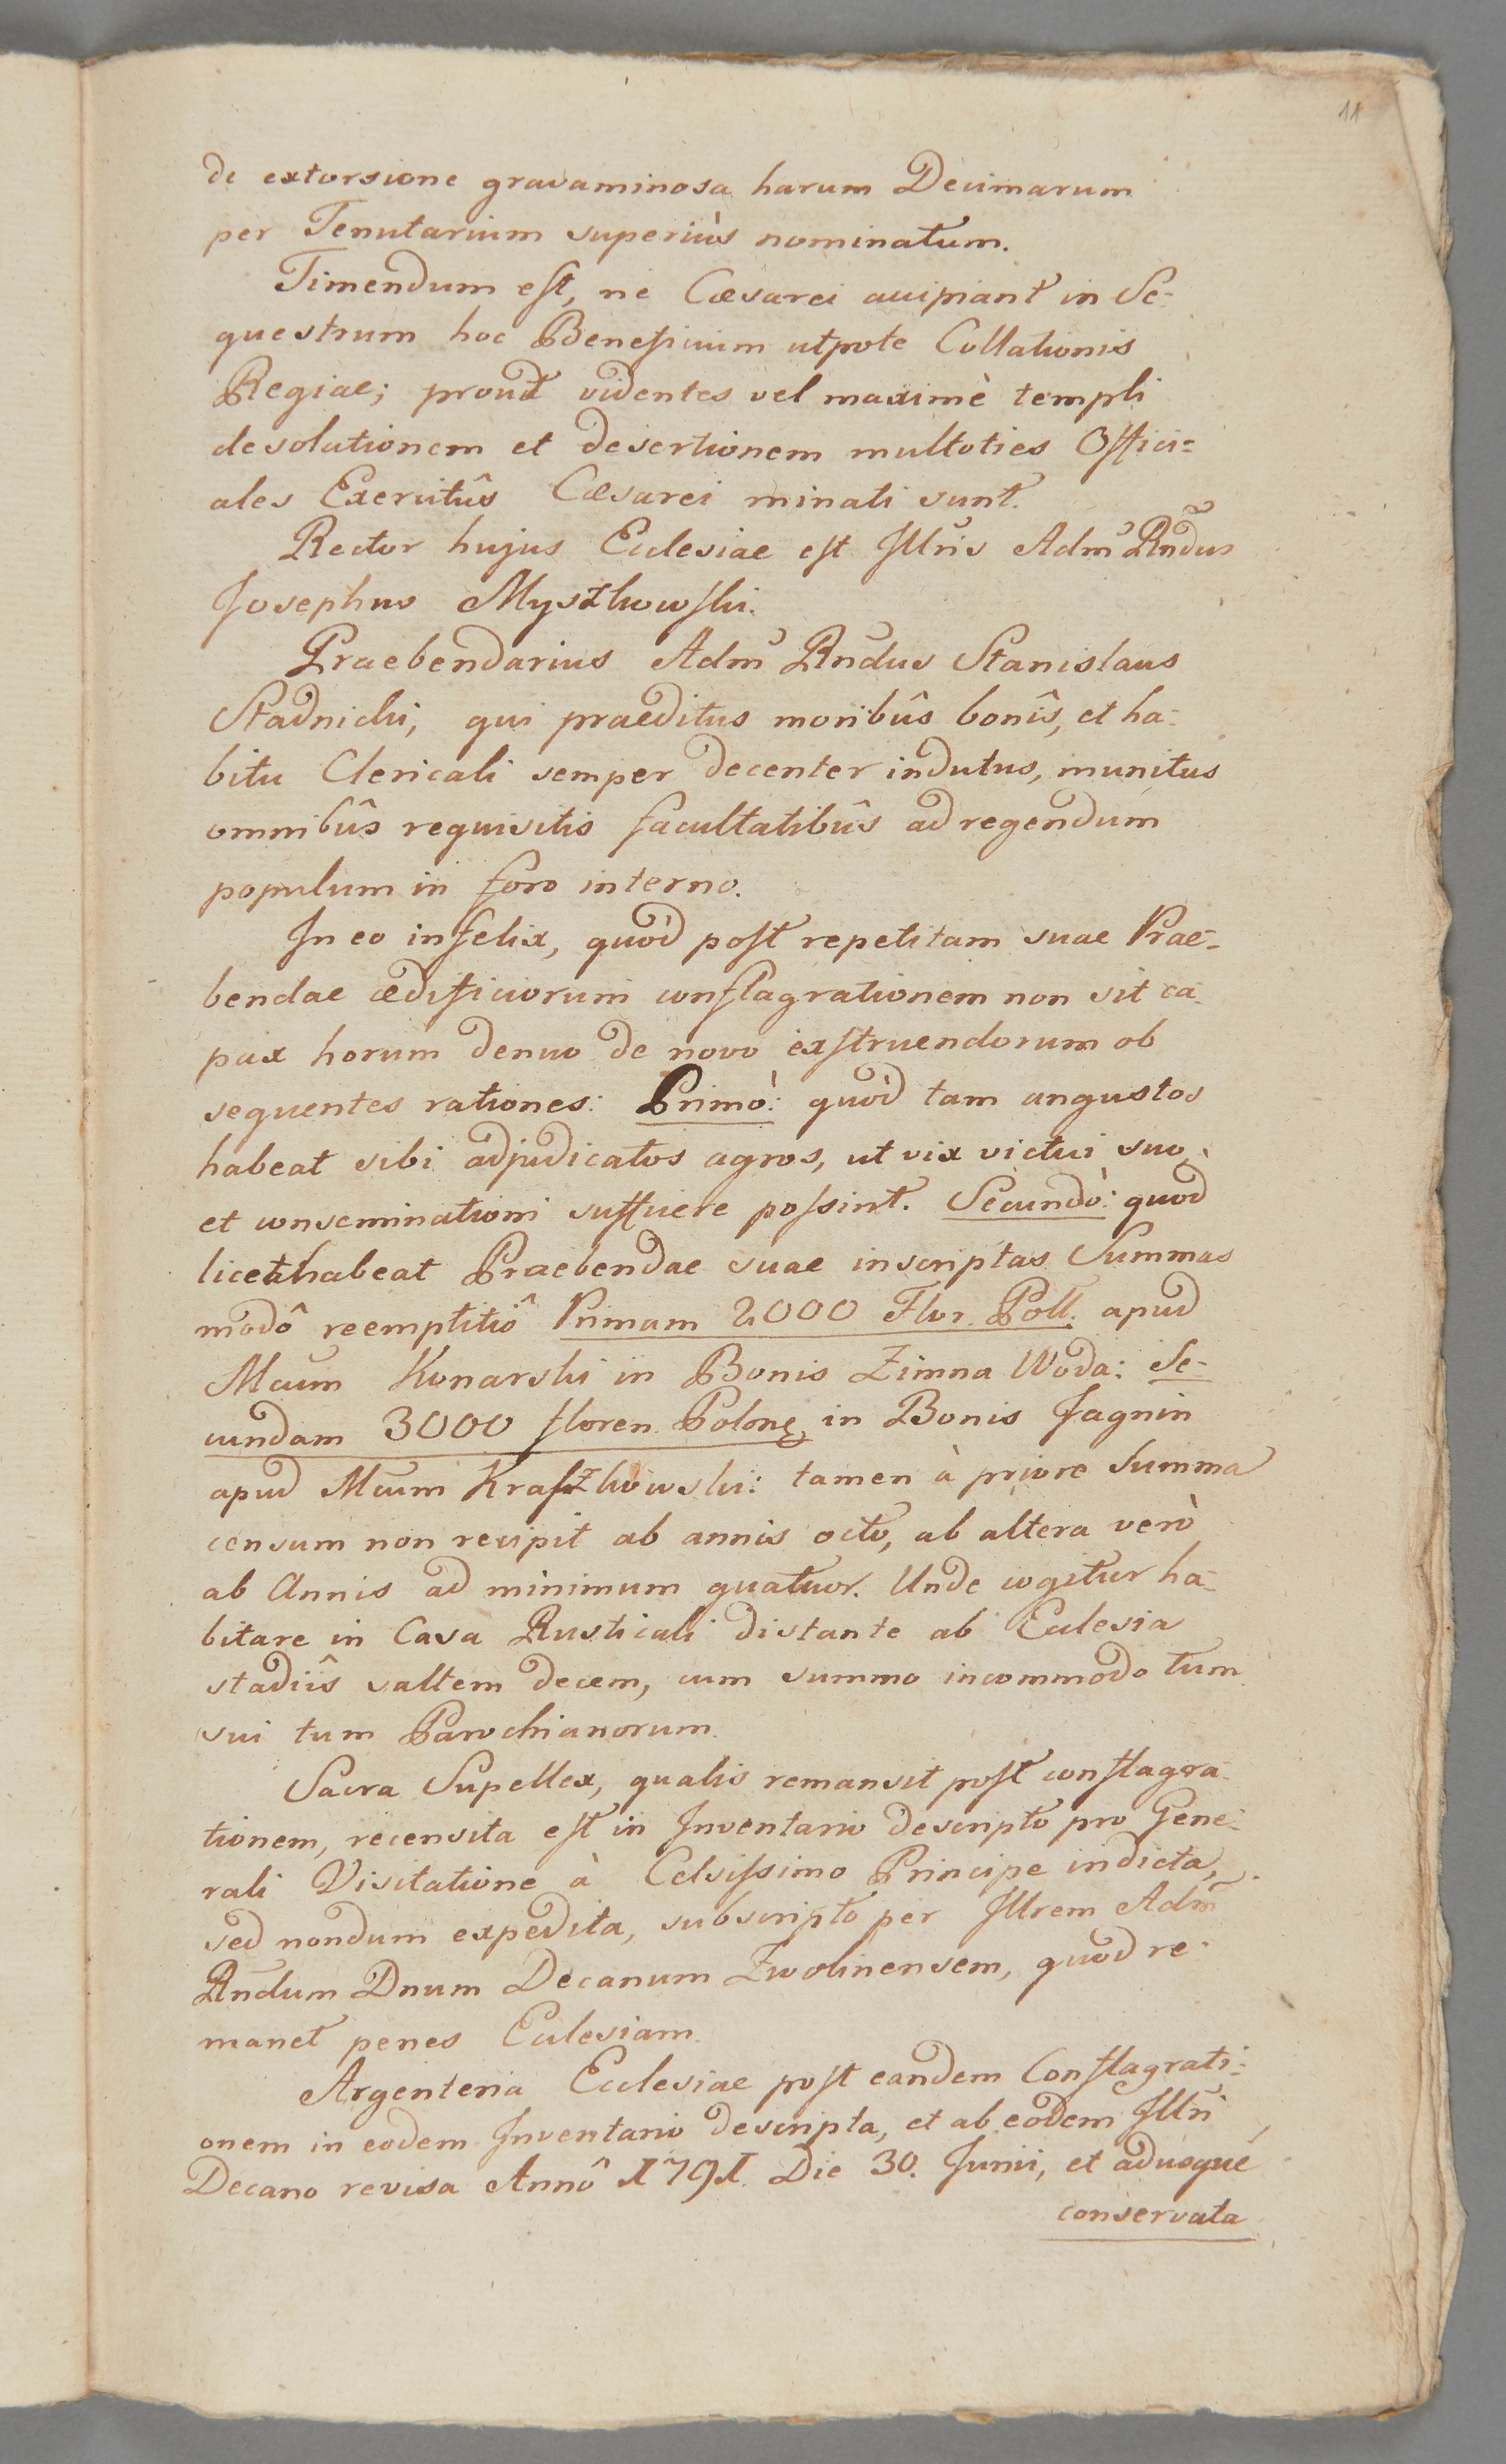 11
de extorsione gravaminosa harum Decimarum
per Tenutarium superiùs nominatum.
Timendum est, ne Cæsarei accipiant in Se-
questrum hoc Beneficium utpote Collationis
Regiae; prout videntes vel maximè templi
desolationem et desertionem multoties Offici-
ales Exercitûs Cæsarei minati sunt.
Rector hujus Ecclesiae est Illris Adm Rndus
Josephus Myszkowski.
Praebendarius Adm Rndus Stanislaus
Stadnicki, qui praeditus moribûs bonîs, et ha-
bitu Clericali semper decenter indutus, munitus
omnibûs requisitis facultatibûs ad regendum
populum in foro interno.
In eo infelix, quòd post repetitam suae Prae-
bendae ædificiorum conflagrationem non sit ca-
pax horum denuo de novo exstruendorum ob
sequentes rationes: Primò: quòd tam angustos
habeat sibi adjudicatos agros, ut vix victui suo,
et conseminationi sufficere possint. Secundò: quod
licet habeat Praebendae suae inscriptas Summas
modô reemptitiô Primam 2000 Flor. Poll. apud
Mcum Konarski in Bonis Zimna Woda: Se-
cundam 3000 floren Polonę in Bonis Jagnin
apud Mcum Kraszkowski: tamen à priore Summa
censum non recipit ab annis octo, ab altera verò
ab Annis ad minimum quatuor. Unde cogitur ha-
bitare in Casa Rusticali distante ab Ecclesia
stadiîs saltem decem, cum summo incommodo tum
sui tum Parochianorum.
Sacra Supellex, qualis remansit post conflagra-
tionem, recensita est in Inventario descripto pro Gene-
rali Visitatione à Celsissimo Principe indicta,
sed nondum expedita, subscripto per Illrem Adm
Rndum Dnum Decanum Zwolinensem, quod re-
manet penes Ecclesiam.
Argenteria Ecclesiae post eandem Conflagrati-
onem in eodem Inventario descripta, et ab eodem Illri
Decano revisa Annô 1791. Die 30. Junii, et adusque
conservata